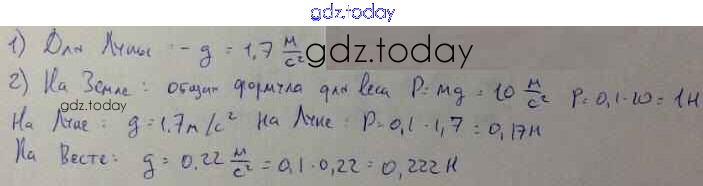 gdz.today
1) Для Луны : - g = 1,7 м/с²
gdz.today
2) На Земле : общая формула для веса P = mg = 10 м/с² P = 0,1 · 10 = 1Н
gdz.today
На Луне : g = 1.7 м/с² На Луне : P = 0,1 · 1,7 = 0,17Н
На Весте : g = 0,22 м/с² = 0,1 · 0,22 = 0,222 Н